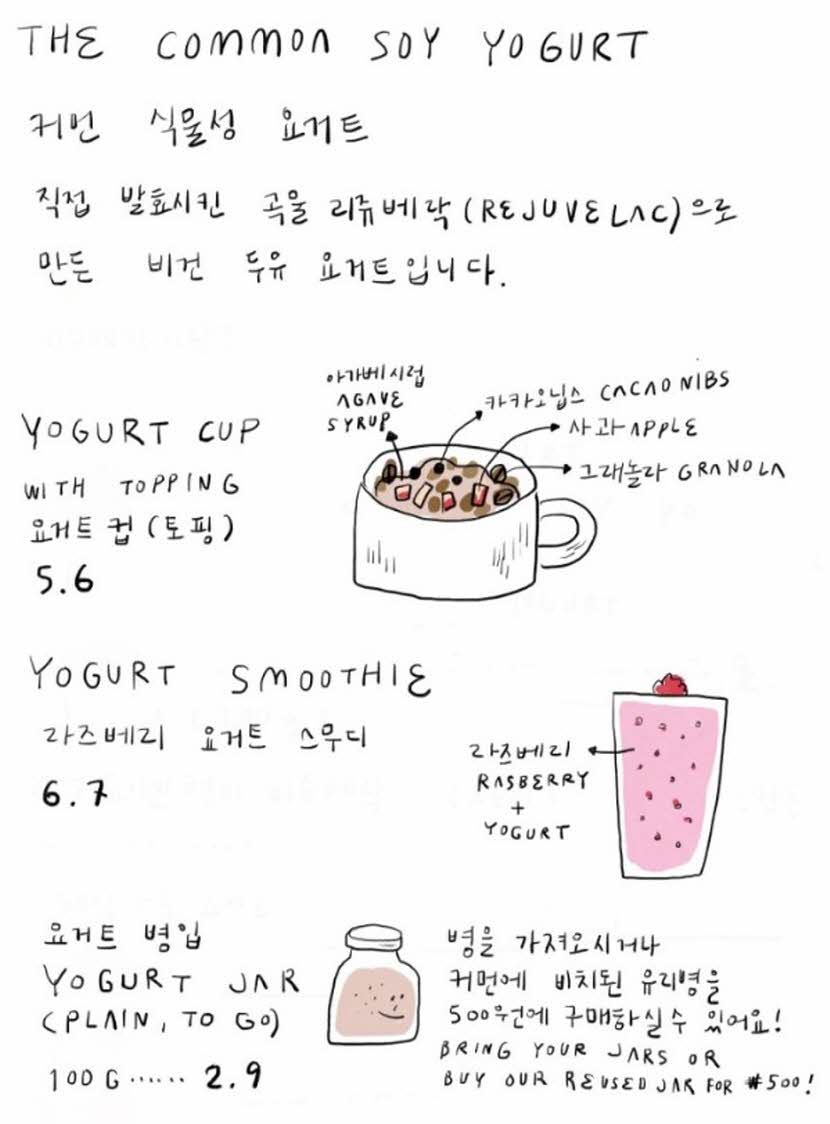 THE COMMON SOY YOGURT
커먼 식물성 요거트
직접 발효시킨 곡물 리쥬베락(REJUVELAC)으로
만든 비건 두유 요거트입니다.
YOGURT CUP
WITH TOPPING
요거트 컵 (토핑)
5.6
아가베시럽
AGAVE
SYRUP
카카오닙스 CACAO NIBS
사과 APPLE
그래놀라 GRANOLA
YOGURT SMOOTHIE
라즈베리 요거트 스무디
6.7
라즈베리
RASBERRY
+
YOGURT
요거트 병입
YOGURT JAR
(PLAIN, TO GO)
100 G ...... 2.9
병을 가져오시거나
커먼에 비치된 유리병을
500원에 구매하실 수 있어요!
BRING YOUR JARS OR
BUY OUR REUSED JAR FOR ₩500!